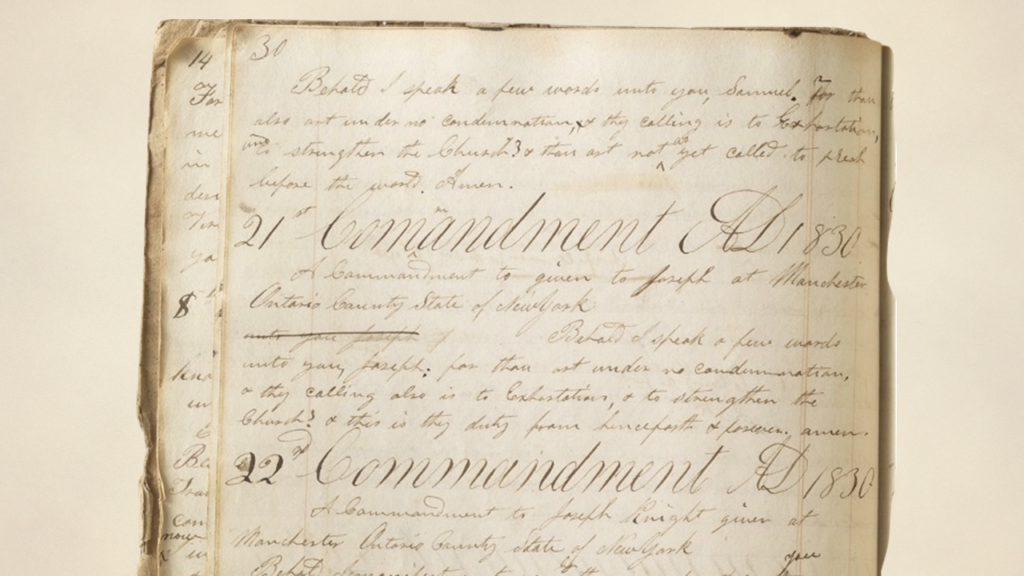 30
Behold I speak a few words unto you, Samuel. For thou
also art under no condemnation, & thy calling is to Exhortation,
and to strengthen the Church? & thou art not as yet called to preach
before the world. Amen.
21st Commandment AD 1830
A Commandment to given to Joseph at Manchester
Ontario County State of New York
unto you Joseph Behold I speak a few words
unto you, Joseph. for thou art under no condemnation,
& thy calling also is to Exhortation, & to strengthen the
Church? & this is thy duty from henceforth & forever. amen.
22nd Commandment AD 1830
A Commandment to Joseph Knight given at
Manchester Ontario County State of New York
you
Behold
14
For
me
in
8
know
in